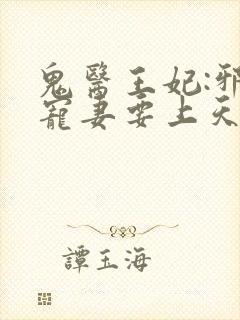 鬼醫王妃:邪
寵妻要上天
譚玉海